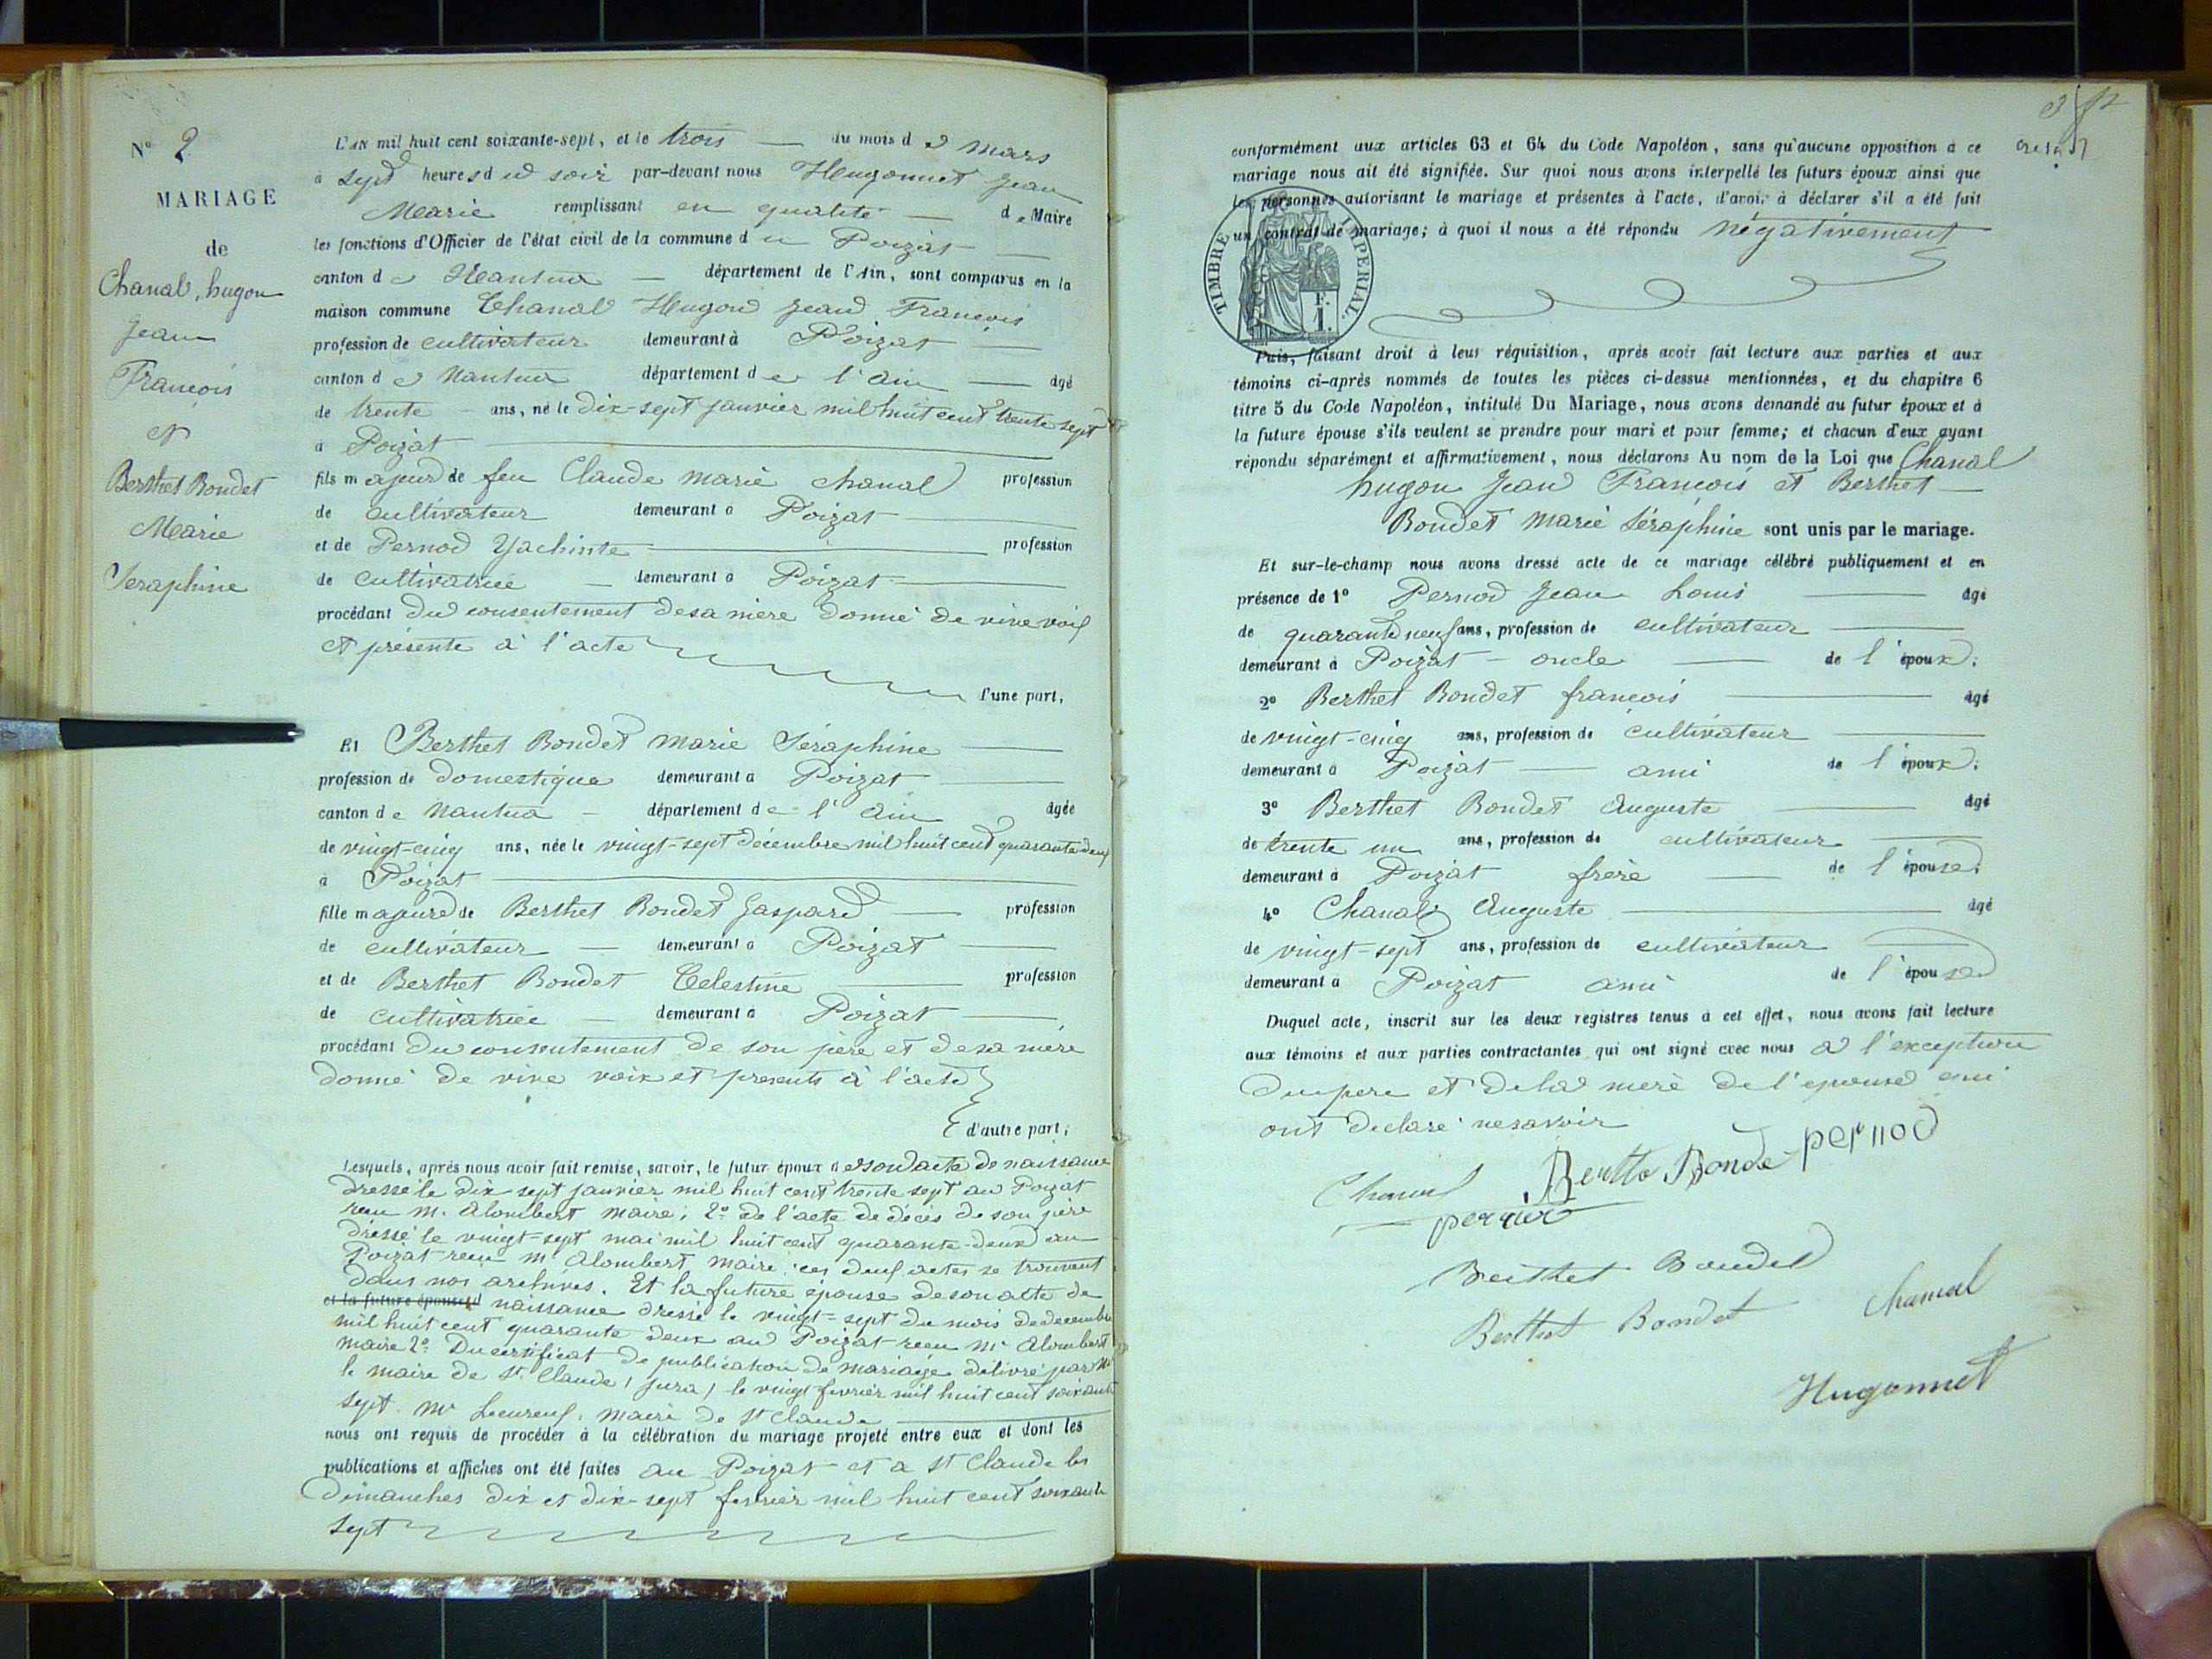 N° 2
MARIAGE
de
Chanal, hugon
Jean
François
et
Berthet Bondet
Marie
Seraphine
L'an mil huit cent soixante-sept, et le trois — du mois de mars
à sept heures du soir par-devant nous Hugonnet Jean
Marie remplissant en qualité — de Maire
les fonctions d'Officier de l'état civil de la commune du Poizat —
canton de Nantua — département de l'Ain, sont comparus en la
maison commune Chanal Hugon Jean François
profession de cultivateur demeurant à Poizat —
canton de Nantua département de l'ain — âgé
de trente — ans, né le dix-sept janvier mil huit cent trente sept
à Poizat —
fils majeur de feu Claude marie chanal profession
de cultivateur demeurant à Poizat —
et de Pernod Yachinte — profession
de cultivatrice — demeurant à Poizat —
procédant du consentement de sa mère donné de vive voix
et présente à l'acte
l'une part,
Et Berthet Bondet marie Séraphine —
profession de domestique demeurant à Poizat —
canton de Nantua — département de l'ain âgée
de vingt-cinq ans, née le vingt-sept décembre mil huit cent quarante deux
à Poizat —
fille majeure de Berthet Bondet Gaspard — profession
de cultivateur — demeurant à Poizat —
et de Berthet Bondet Celestine — profession
de cultivatrice — demeurant à Poizat —
procédant du consentement de son père et de sa mère
donné de vive voix et presents à l'acte
d'autre part;
Lesquels, après nous avoir fait remise, savoir, le futur époux de son acte de naissance
dressé le dix sept janvier mil huit cent trente sept au Poizat
recu m. Alombert maire; 2° de l'acte de décès de son père
dressé le vingt-sept mai mil huit cent quarante-deux au
Poizat recu mr Alombert maire, ces deux actes se trouvent
dans nos archives. Et la future épouse de son acte de
et la future épouse d naissance dressé le vingt-sept du mois de decembre
mil huit cent quarante deux au Poizat recu mr Alombert
maire 2° Du certificat de publication de mariage délivré par Mr
le maire de St Claude (jura) le vingt fevrier mil huit cent soixante
sept. mr maire de St Claude —
nous ont requis de procéder à la célébration du mariage projeté entre eux et dont les
publications et affiches ont été faites au Poizat et a St Claude les
Dimanches dix et dix-sept fevrier mil huit cent soixante
sept
conformément aux articles 63 et 64 du Code Napoléon, sans qu'aucune opposition à ce
mariage nous ait été signifiée. Sur quoi nous avons interpellé les futurs époux ainsi que
les personnes autorisant le mariage et présentes à l'acte, d'avoir à déclarer s'il a été fait
un contrat de mariage; à quoi il nous a été répondu négativement
TIMBRE IMPERIAL.
F. 1.
Puis, faisant droit à leur réquisition, après avoir fait lecture aux parties et aux
témoins ci-après nommés de toutes les pièces ci-dessus mentionnées, et du chapitre 6
titre 5 du Code Napoléon, intitulé Du Mariage, nous avons demandé au futur époux et à
la future épouse s'ils veulent se prendre pour mari et pour femme; et chacun d'eux ayant
répondu séparément et affirmativement, nous déclarons Au nom de la Loi que Chanal
hugon Jean François et Berthet —
Bondet marie Séraphine sont unis par le mariage.
Et sur-le-champ nous avons dressé acte de ce mariage célébré publiquement et en
présence de 1° Pernod Jean Louis — âgé
de quarante neuf ans, profession de cultivateur —
demeurant à Poizat — oncle — de l'époux;
2° Berthet Bondet françois — âgé
de vingt-cinq ans, profession de cultivateur —
demeurant à Poizat — ami de l'époux;
3° Berthet Bondet Auguste — âgé
de trente un ans, profession de cultivateur —
demeurant à Poizat frère — de l'épouse;
4° Chanal Auguste — âgé
de vingt-sept ans, profession de cultivateur
demeurant à Poizat ami de l'épouse
Duquel acte, inscrit sur les deux registres tenus à cet effet, nous avons fait lecture
aux témoins et aux parties contractantes qui ont signé avec nous à l'exception
du pere et de la merè de l'epouse qui
ont déclaré ne savoir
Chanal Bertte Bonde pernod
Berthet Bondet
Berthet Bondet Chanal
Hugonnet